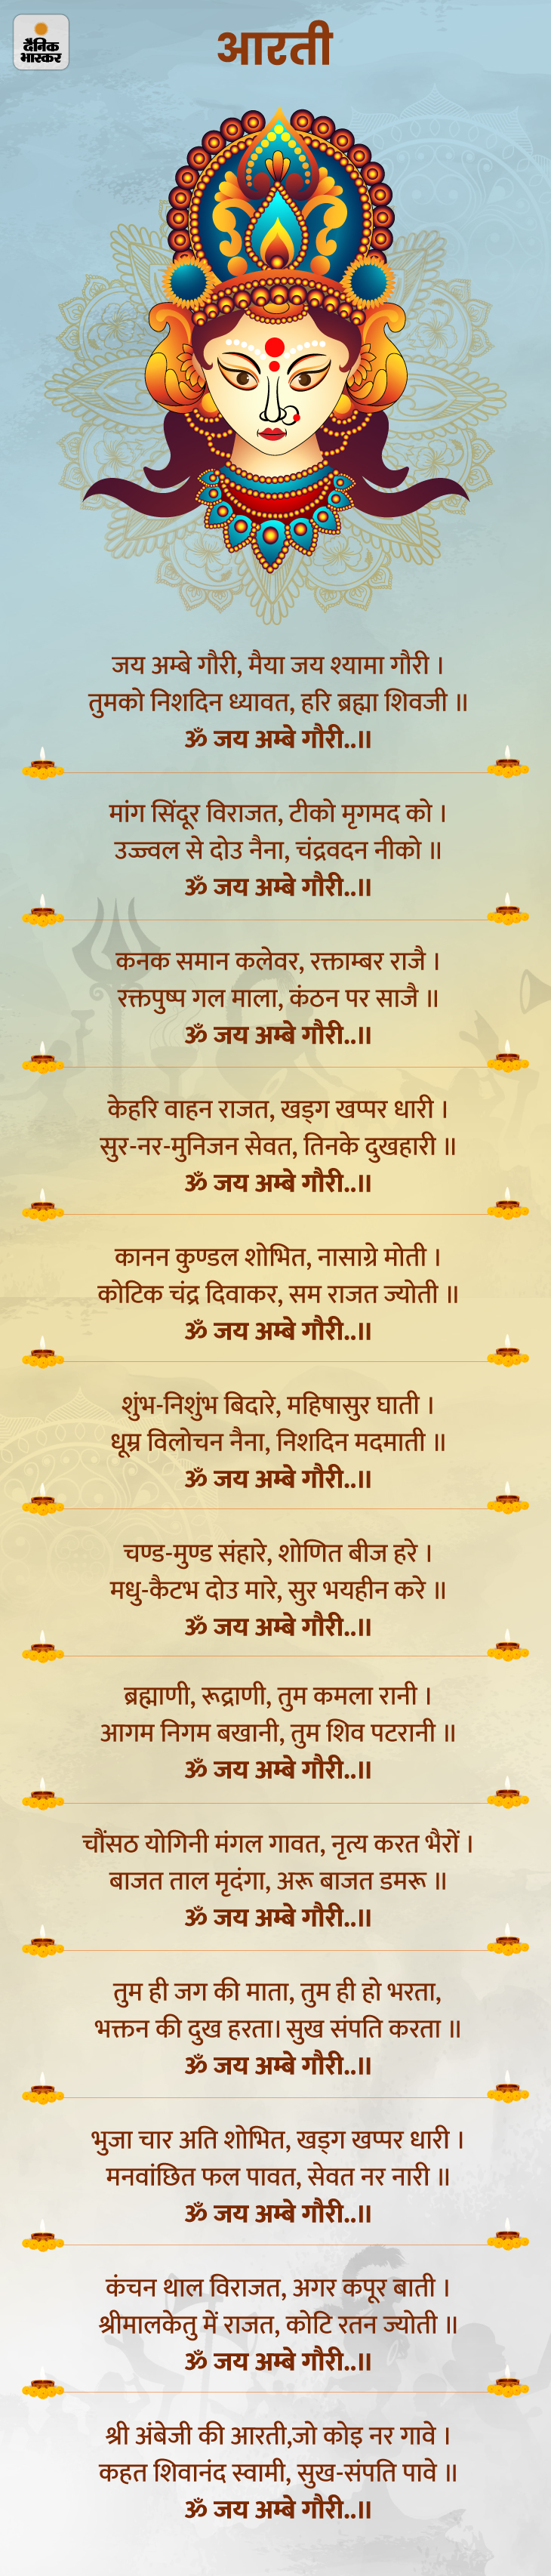 दैनिक
भास्कर
आरती
जय अम्बे गौरी, मैया जय श्यामा गौरी ।
तुमको निशदिन ध्यावत, हरि ब्रह्मा शिवजी ॥
ॐ जय अम्बे गौरी..॥
मांग सिंदूर विराजत, टीको मृगमद को ।
उज्ज्वल से दोउ नैना, चंद्रवदन नीको ॥
ॐ जय अम्बे गौरी..॥
कनक समान कलेवर, रक्ताम्बर राजै ।
रक्तपुष्प गल माला, कंठन पर साजै ॥
ॐ जय अम्बे गौरी..॥
केहरि वाहन राजत, खड्ग खप्पर धारी ।
सुर-नर-मुनिजन सेवत, तिनके दुखहारी ॥
ॐ जय अम्बे गौरी..॥
कानन कुण्डल शोभित, नासाग्रे मोती ।
कोटिक चंद्र दिवाकर, सम राजत ज्योती ॥
ॐ जय अम्बे गौरी..॥
शुंभ-निशुंभ बिदारे, महिषासुर घाती ।
धूम्र विलोचन नैना, निशदिन मदमाती ॥
ॐ जय अम्बे गौरी..॥
चण्ड-मुण्ड संहारे, शोणित बीज हरे ।
मधु-कैटभ दोउ मारे, सुर भयहीन करे ॥
ॐ जय अम्बे गौरी..॥
ब्रह्माणी, रूद्राणी, तुम कमला रानी ।
आगम निगम बखानी, तुम शिव पटरानी ॥
ॐ जय अम्बे गौरी..॥
चौंसठ योगिनी मंगल गावत, नृत्य करत भैरों ।
बाजत ताल मृदंगा, अरू बाजत डमरू ॥
ॐ जय अम्बे गौरी..॥
तुम ही जग की माता, तुम ही हो भरता,
भक्तन की दुख हरता। सुख संपति करता ॥
ॐ जय अम्बे गौरी..॥
भुजा चार अति शोभित, खड्ग खप्पर धारी ।
मनवांछित फल पावत, सेवत नर नारी ॥
ॐ जय अम्बे गौरी..॥
कंचन थाल विराजत, अगर कपूर बाती ।
श्रीमालकेतु में राजत, कोटि रतन ज्योती ॥
ॐ जय अम्बे गौरी..॥
श्री अंबेजी की आरती,जो कोइ नर गावे ।
कहत शिवानंद स्वामी, सुख-संपति पावे ॥
ॐ जय अम्बे गौरी..॥